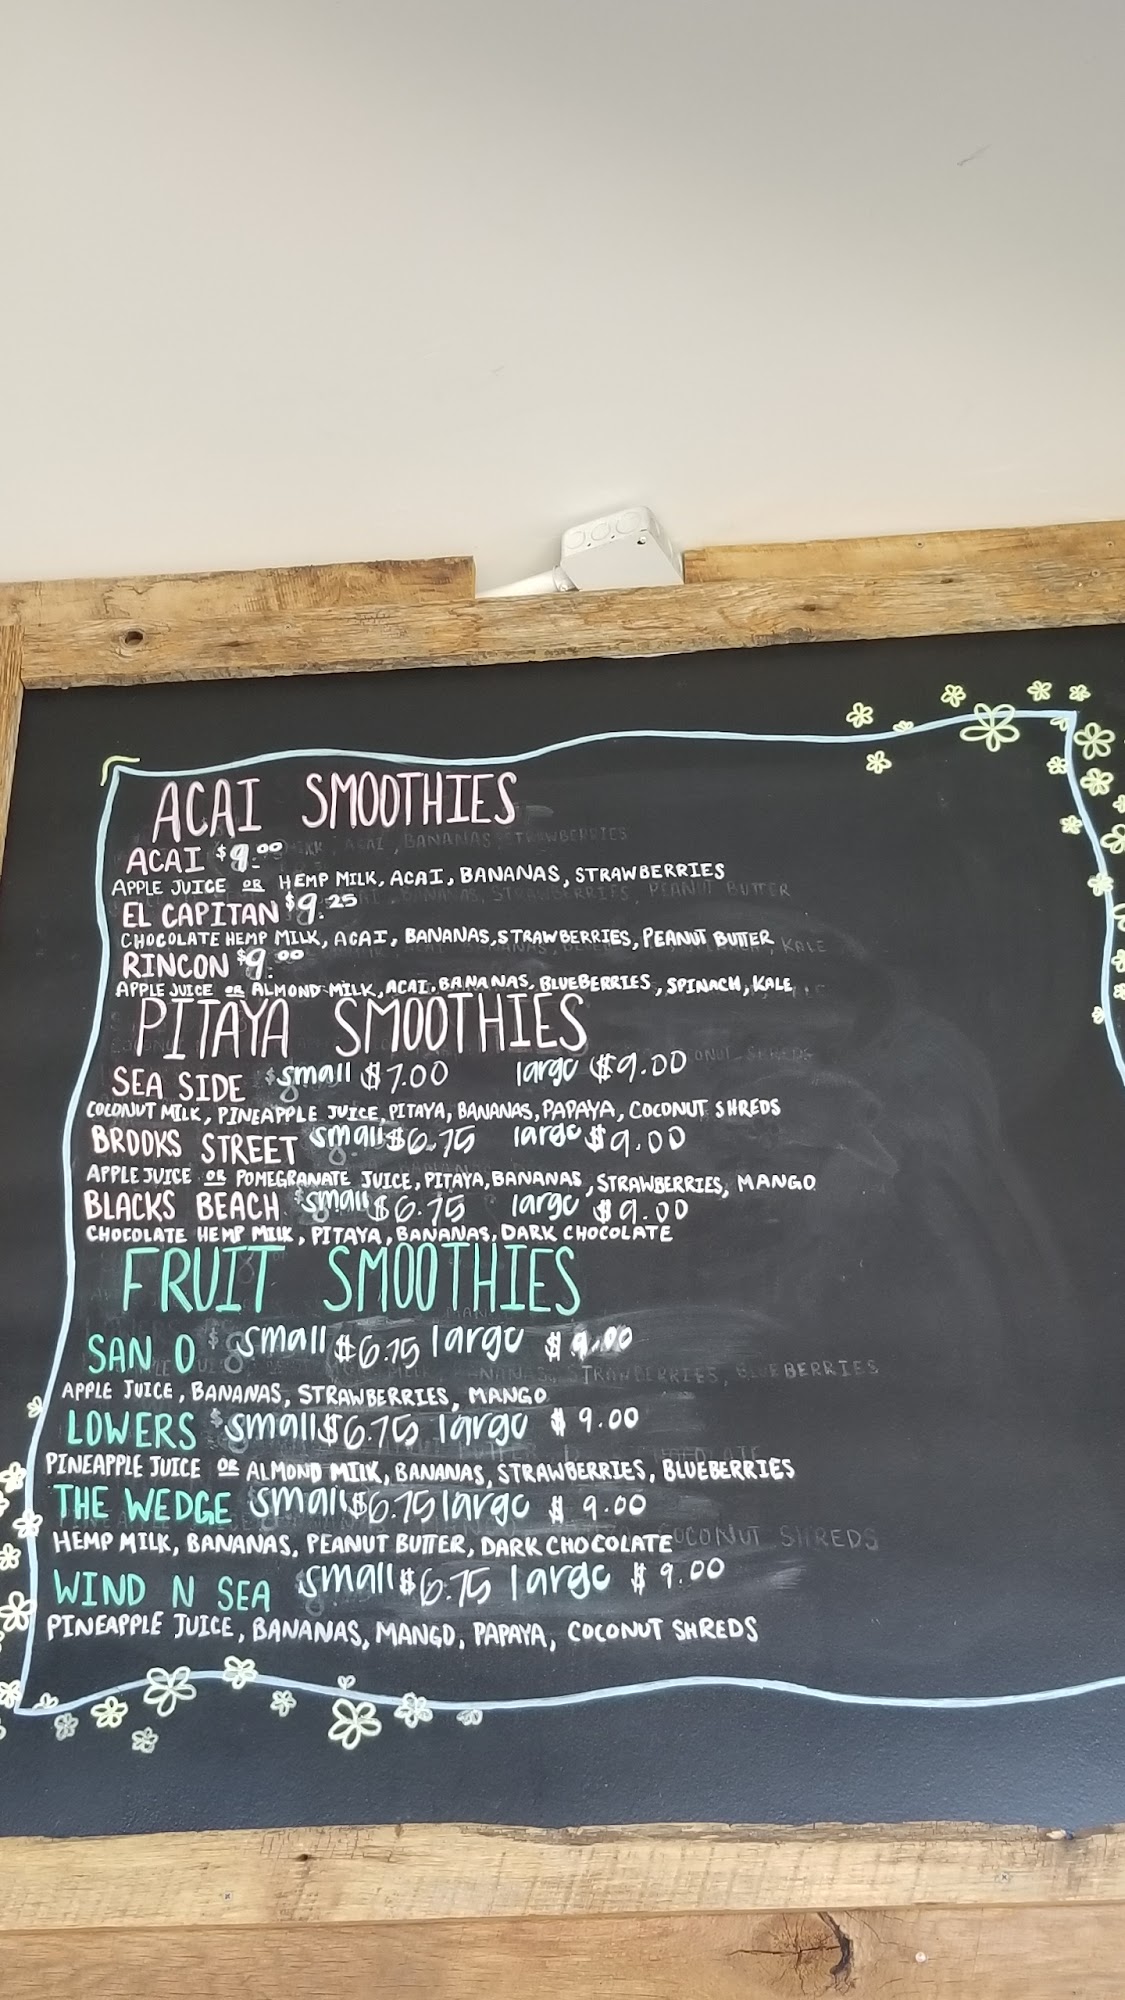 ACAI SMOOTHIES
ACAI $9.00
APPLE JUICE OR HEMP MILK, ACAI, BANANAS, STRAWBERRIES
EL CAPITAN $9.25
CHOCOLATE HEMP MILK, ACAI, BANANAS, STRAWBERRIES, PEANUT BUTTER
RINCON $9.00
APPLE JUICE OR ALMOND MILK, ACAI, BANANAS, BLUEBERRIES, SPINACH, KALE
PITAYA SMOOTHIES
SEA SIDE small $7.00 large $9.00
COCONUT MILK, PINEAPPLE JUICE, PITAYA, BANANAS, PAPAYA, COCONUT SHREDS
BROOKS STREET small $6.75 large $9.00
APPLE JUICE OR POMEGRANATE JUICE, PITAYA, BANANAS, STRAWBERRIES, MANGO
BLACKS BEACH small $6.75 large $9.00
CHOCOLATE HEMP MILK, PITAYA, BANANAS, DARK CHOCOLATE
FRUIT SMOOTHIES
SAN O small $6.75 large $9.00
APPLE JUICE, BANANAS, STRAWBERRIES, MANGO
LOWERS small $6.75 large $9.00
PINEAPPLE JUICE OR ALMOND MILK, BANANAS, STRAWBERRIES, BLUEBERRIES
THE WEDGE small $6.75 large $9.00
HEMP MILK, BANANAS, PEANUT BUTTER, DARK CHOCOLATE
WIND N SEA small $6.75 large $9.00
PINEAPPLE JUICE, BANANAS, MANGO, PAPAYA, COCONUT SHREDS